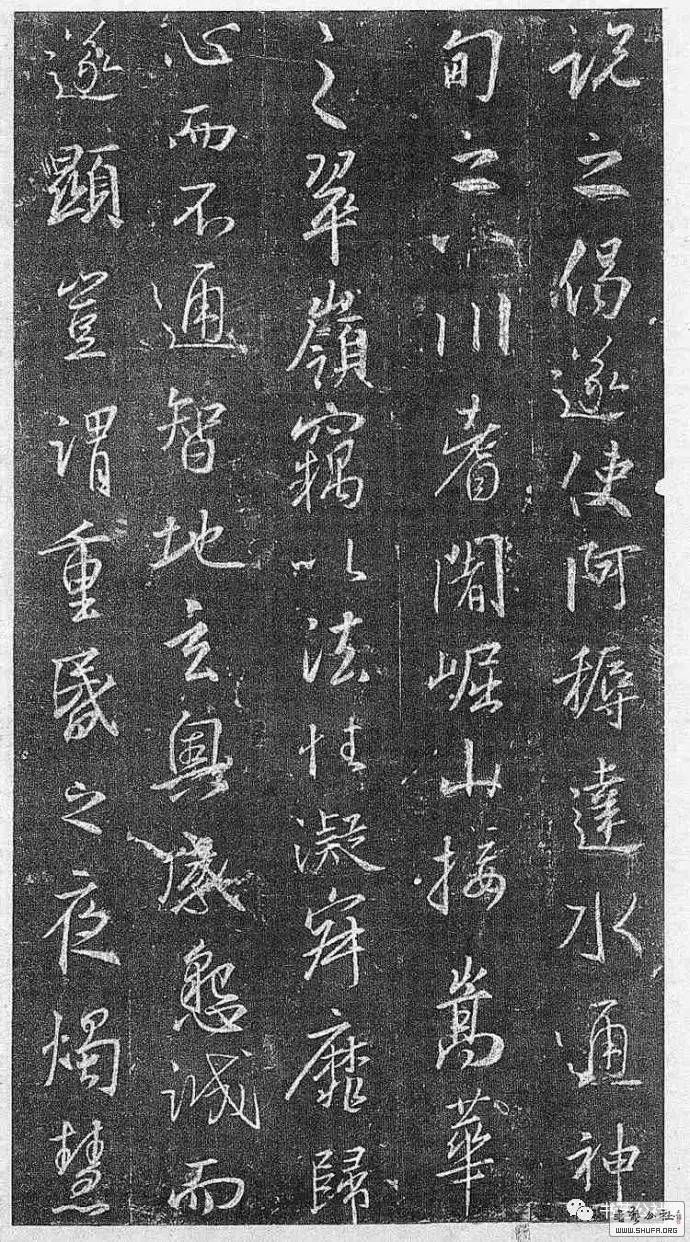 説之偈遂使阿耨達水通神
甸之八川耆闍崛山接嵩華
之翠嶺竊以法性凝寂靡歸
心而不通智地玄奧感懇誠而
遂顯豈謂重昏之夜燭慧
WWW.SHUFA.ORG